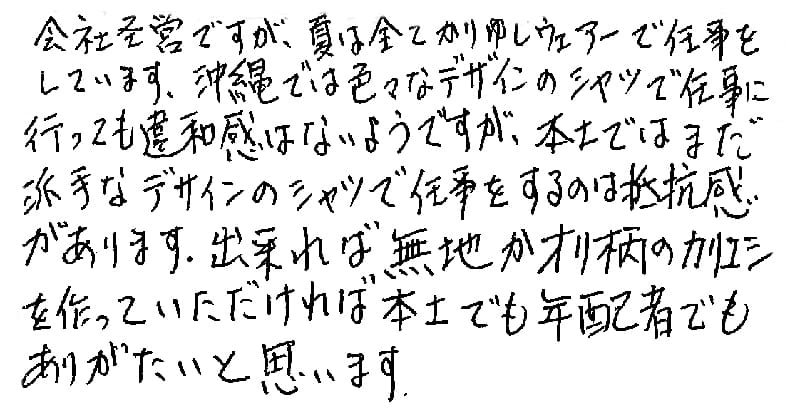 会社経営ですが、夏は全てかりゆしウェアーで仕事を
しています、沖縄では色々なデザインのシャツで仕事に
行っても違和感はないようですが、本土ではまだ
派手なデザインのシャツで仕事をするのは抵抗感
があります。出来れば無地かオリ柄のカリユシ
を作っていただければ本土でも年配者でも
ありがたいと思います.